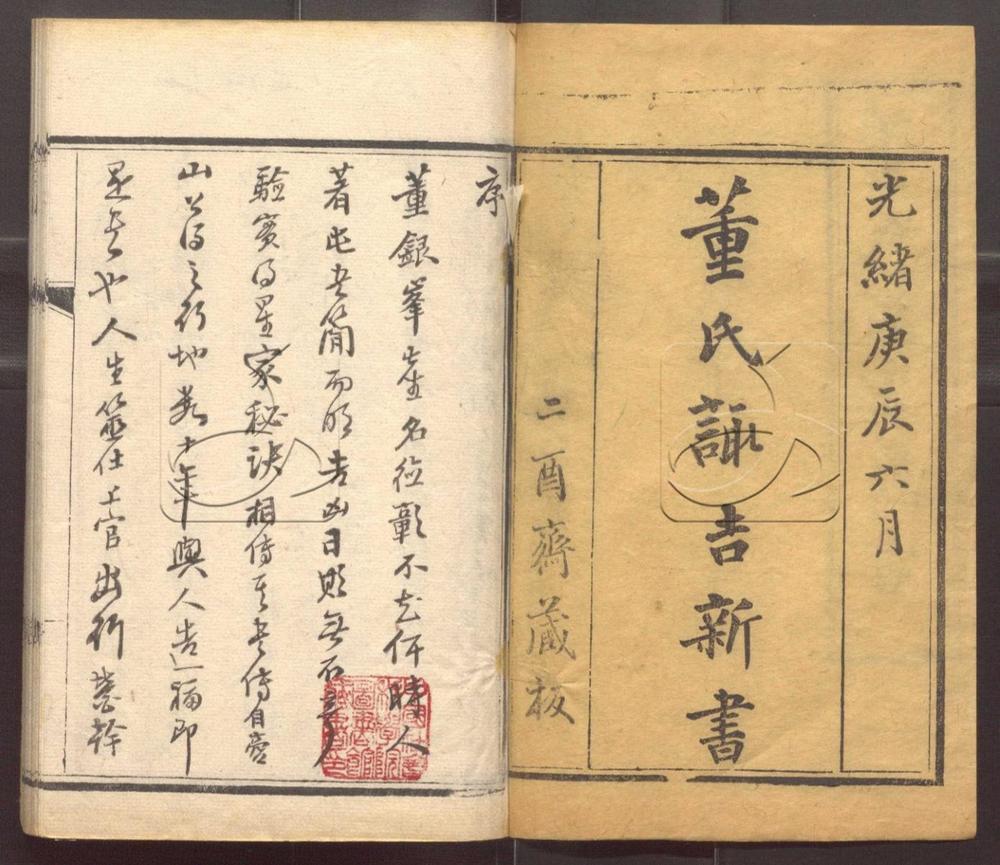 光緒庚辰六月
董氏諏吉新書
二酉齋藏板
序
董銀峯先生名德彰不知何時人
著此書簡而明吉凶日期無不應
驗實乃星家秘訣相傳其書傳自
山公得之行地數十年與人造福即
是書也人生筮仕上官出行營幹